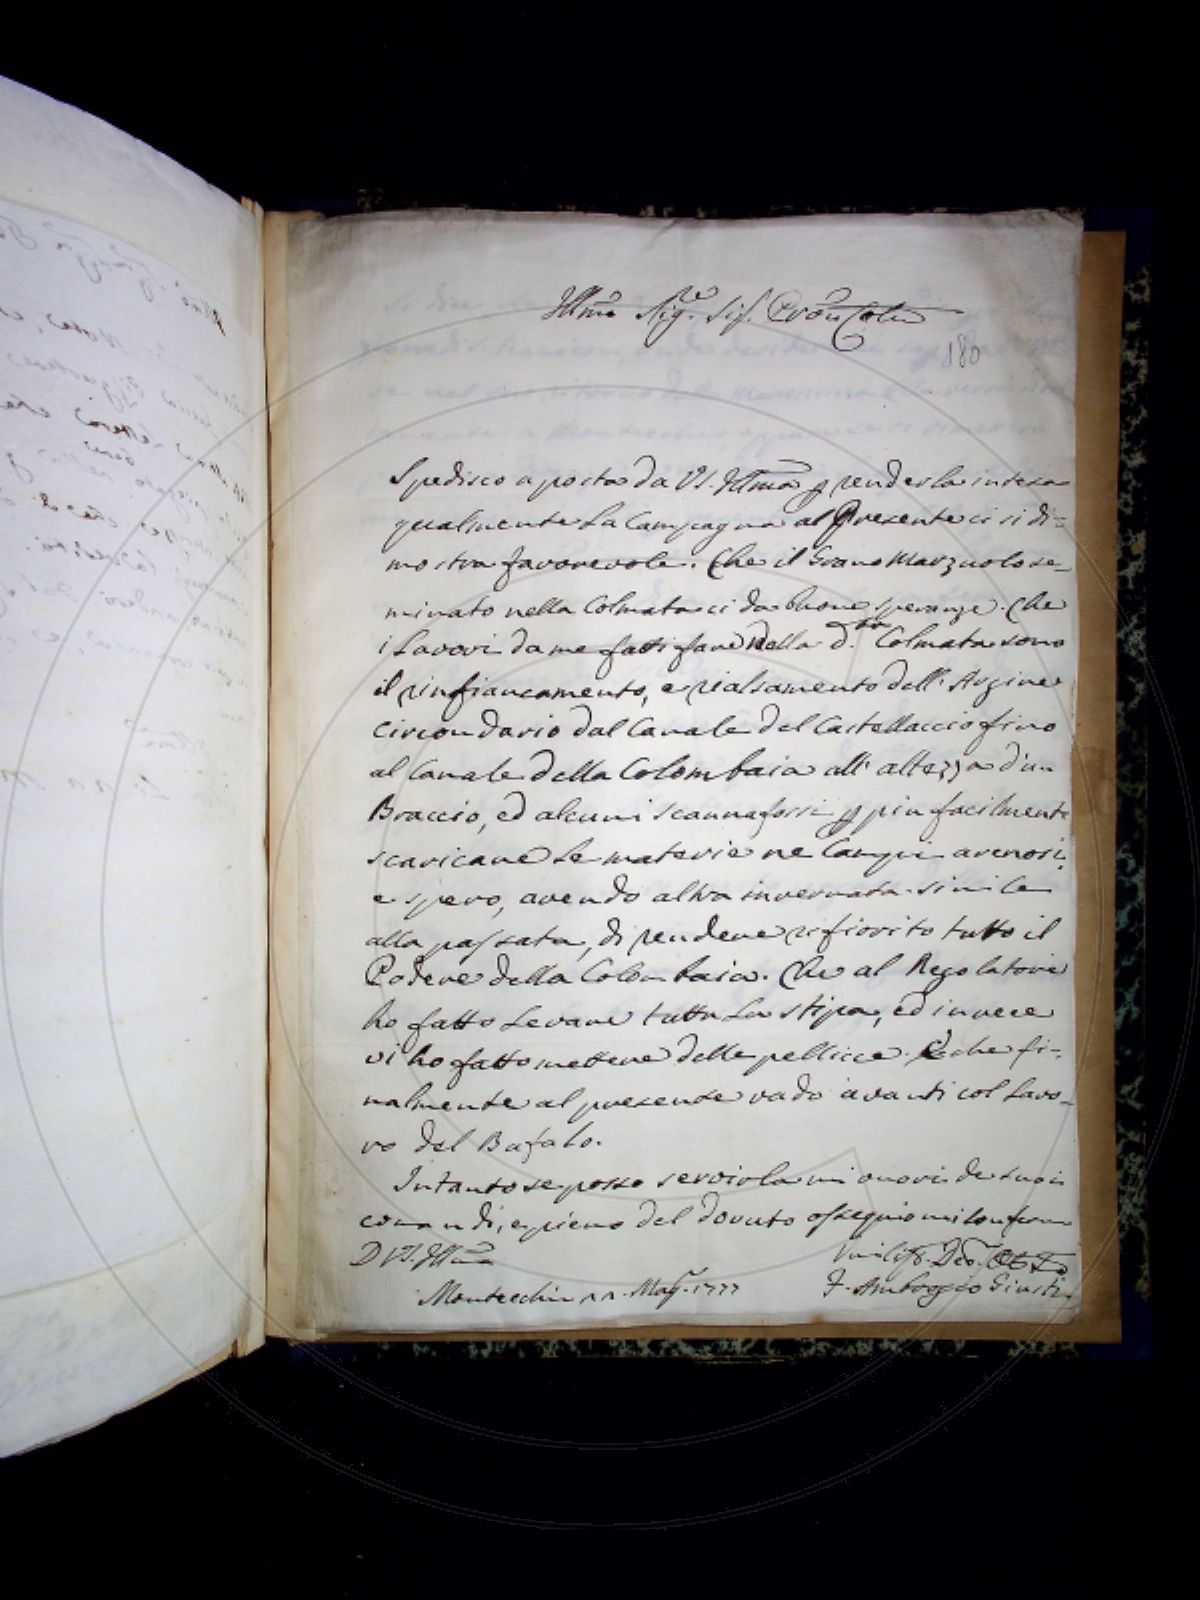 Illmo Sig.re Sig. Pron Colmo
180
Spedisco a posta da VS. Illma p renderla intesa
qualmente la Campagna al presente ci si di=
mostra favorevole. Che il Grano Marzuolo se=
minato nella Colmata ci da buone speranze. Che
i Lavori da me fatti fare nella d.ta Colmata sono
il rinfiancamento, e rialsamento dell'Argine
Circondario dal Canale del Castellaccio fino
al Canale della Colombaia all'altezza d'un
Braccio, ed alcuni scannafossi p piu facilmente
scaricare le materie ne Campi arenosi;
e spero, avendo altra invernata simile
alla passata, di rendere rifiorito tutto il
Podere della Colombaia. Che al Regolatore
ho fatto levare tutta la stipa, ed invece
vi ho fatto mettere delle pellicce. E che fi=
nalmente al presente vado avanti col Lavo=
ro del Bufalo.
Intanto se posso servirla mi onori de suoi
comandi, e pieno del dovuto ossequio mi confermo
D VS. Illma
Montecchio 11. Mag. 1777
Umiliss. Dev. Obb.
F. Ambrogio Giusti